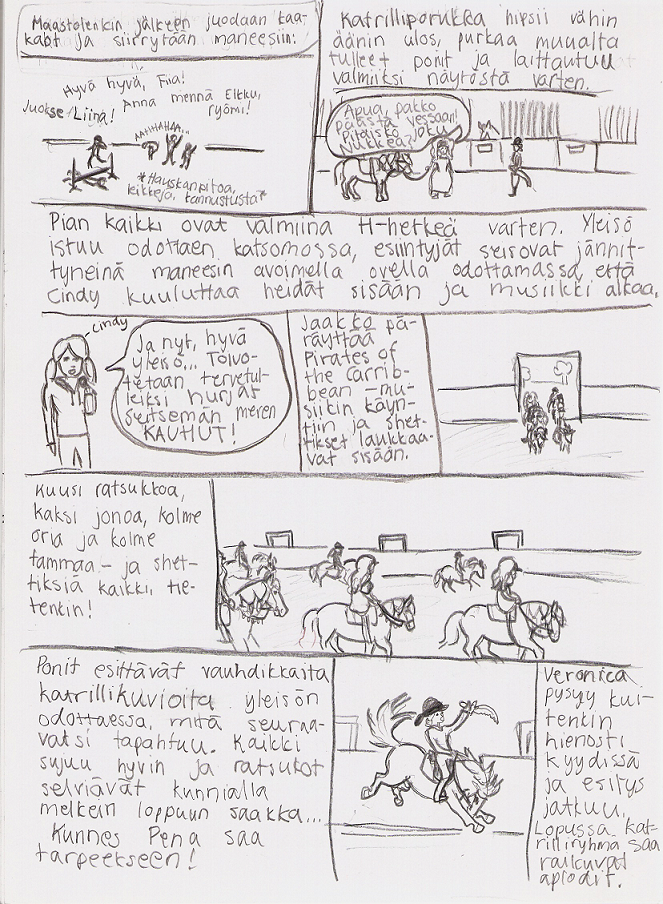 Maastolenkin jälkeen juodaan kaa-
kaot ja siirrytään maneesiin.
Hyvä hyvä, Fiia!
Juokse Liina!
Anna mennä Elkku,
ryömi!
AAHHAHAA...
*Hauskanpitoa,
leikkejä, kannustusta*
Katrilliporukka hipsii vähin
äänin ulos, purkaa muualta
tulleet ponit ja laittautuu
valmiiksi näytöstä varten.
Apua, pakko
päästä vessaan!
Pitäiskö joku
Nukkea?
Pian kaikki ovat valmiina H-hetkeä varten. Yleisö
istuu odottaen katsomossa, esiintyjät seisovat jännit-
tyneinä maneesin avoimella ovella odottamassa, että
Cindy kuuluttaa heidät sisään ja musiikki alkaa.
Cindy
Ja nyt, hyvä
yleisö... Toivo-
tetaan tervetul-
leiksi hurjat
seitsemän meren
KAUHUT!
Jaakko pä-
räyttää
Pirates of
the Carrib-
bean -mu-
siikin käyn-
tiin ja shet-
tikset laukkaa-
vat sisään.
Kuusi ratsukkoa,
kaksi jonoa, kolme
oria ja kolme
tammaa - ja shet-
tiksiä kaikki, tie-
tenkin!
Ponit esittävät vauhdikkaita
katrillikuvioita yleisön
odottaessa, mitä seuraa-
vaksi tapahtuu. Kaikki
sujuu hyvin ja ratsukot
selviävät kunnialla
melkein loppuun saakka...
Kunnes Pena saa
tarpeekseen!
Veronica
pysyy kui-
tenkin
hienosti
kyydissä
ja esitys
jatkuu.
Lopussa kat-
rilliryhmä saa
raikuvat
aplodit.